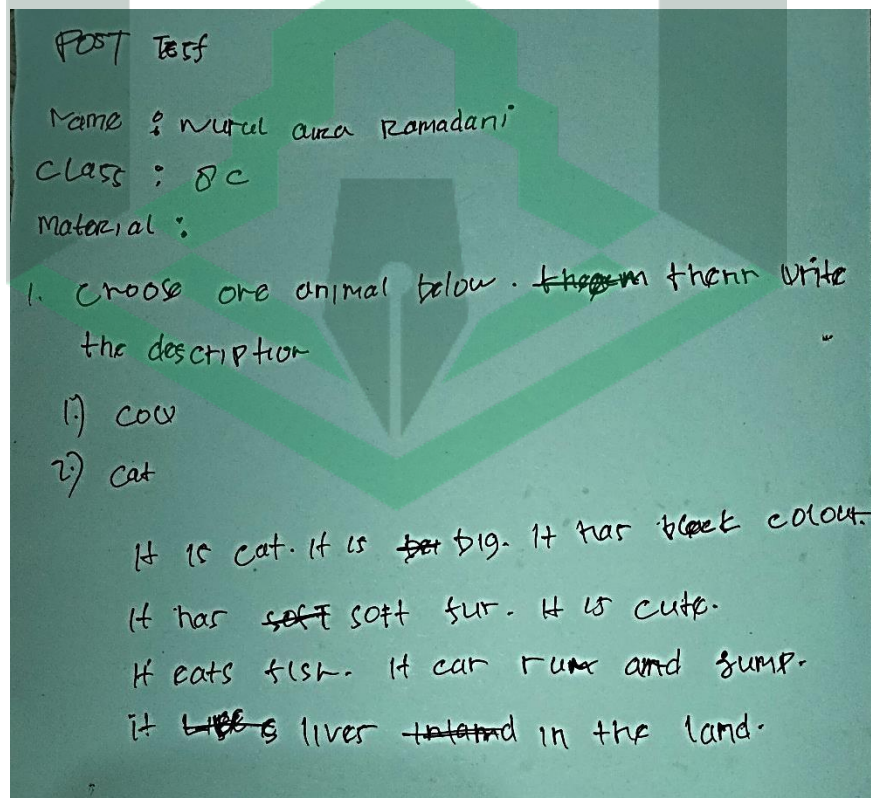 POST Test
Name : Nurul aura Ramadani
Class : 8 C
Material :
1. Choose one animal below. then write
the description
1.) cow
2.) cat
It is cat. It is big. It has black colour.
It has soft soft fur. It is cute.
It eats fish. It can run and jump.
it lives inland in the land.